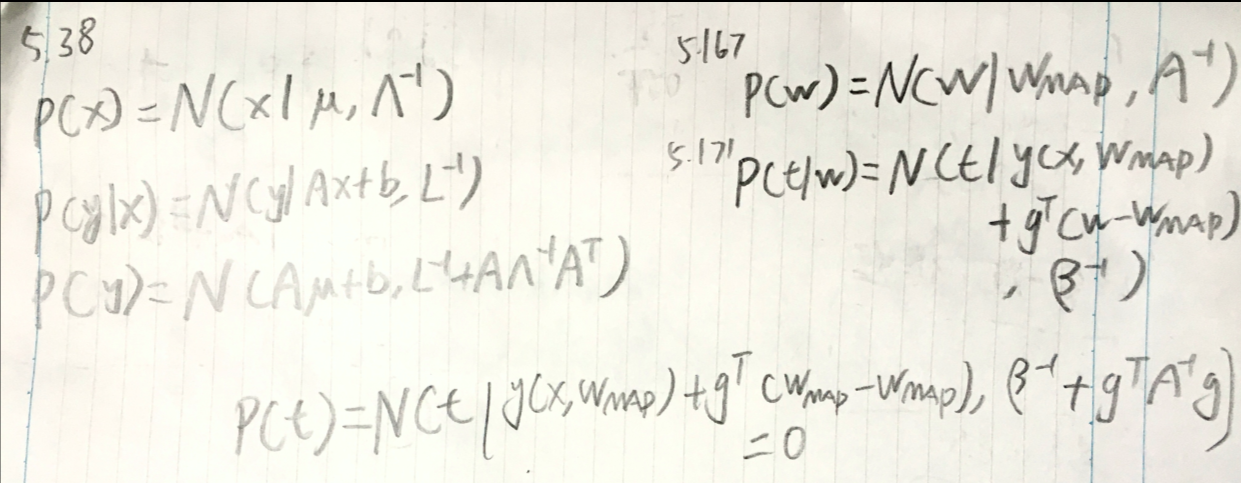 5.38
P(x) = N(x | μ, Λ⁻¹)
P(y|x) = N(y | Ax+b, L⁻¹)
P(y) = N(Aμ+b, L⁻¹+AΛ⁻¹Aᵀ)
5.167
P(w) = N(w | W_MAP, A⁻¹)
5.171 P(t|w) = N(t | y(x, W_MAP)
+ gᵀ(w-W_MAP)
, β⁻¹)
P(t) = N(t | y(x, W_MAP) + gᵀ(W_MAP - W_MAP), β⁻¹ + gᵀA⁻¹g)
=0